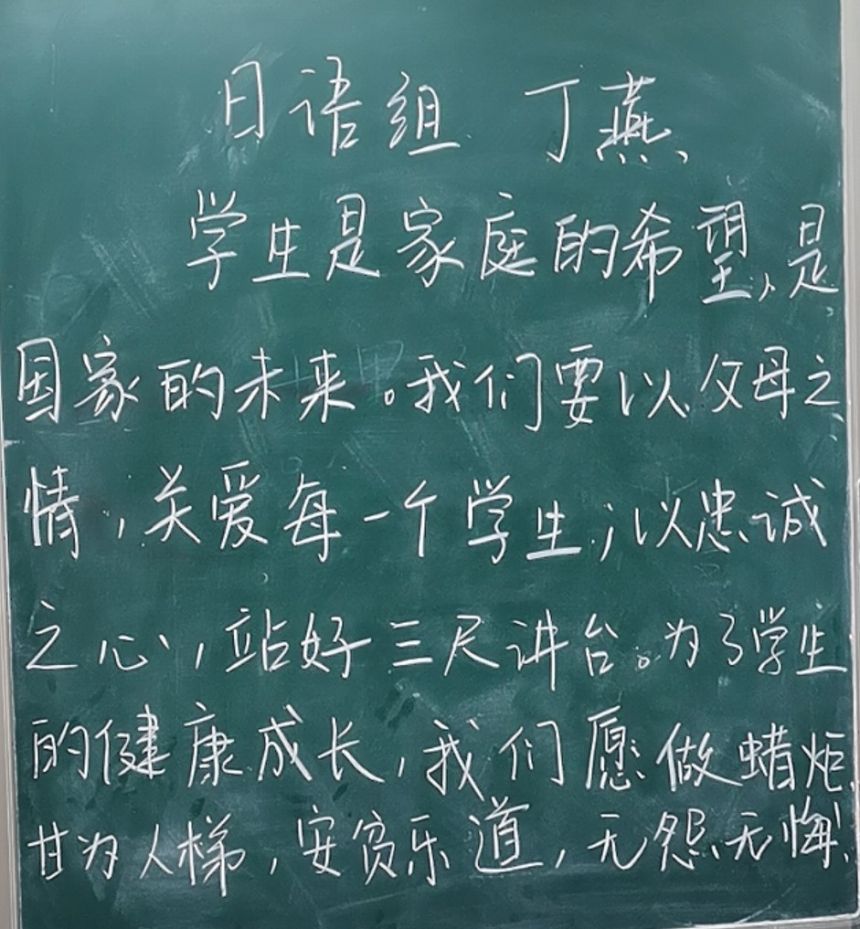 日语组 丁燕
学生是家庭的希望,是
国家的未来。我们要以父母之
情,关爱每一个学生;以忠诚
之心,站好三尺讲台。为了学生
的健康成长,我们愿做蜡炬,
甘为人梯,安贫乐道,无怨、无悔.